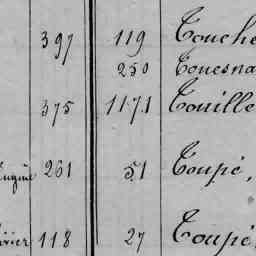 397 119 Touche
250 Touesna
375 1171 Touille
261 51 Toupé,
118 27 Toupé,